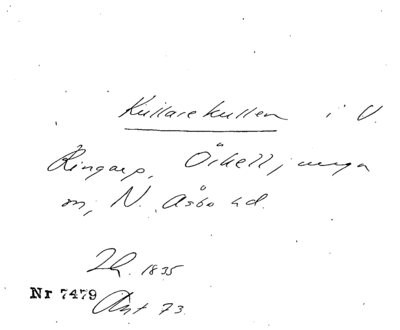 Kullarekullen i V.
Ringarp, Örkelljunga
m, N. Åsbo hd.
1835
Nr 7479 Ant 73.